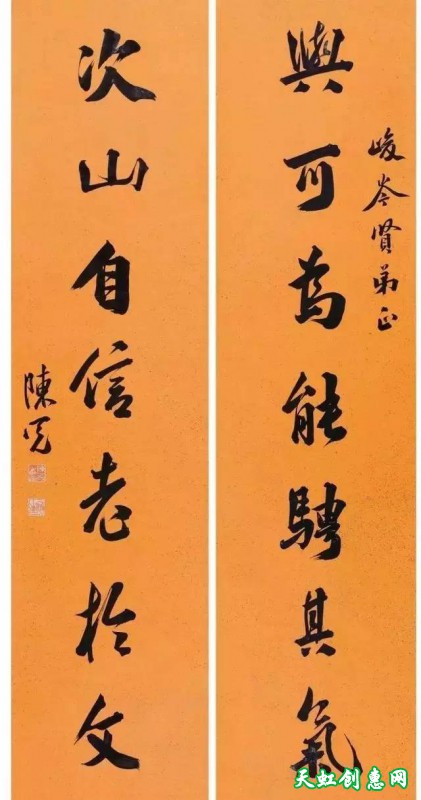 峻岑賢弟正
與可為能騁其氣
次山自信老於文
陳
天虹创惠网